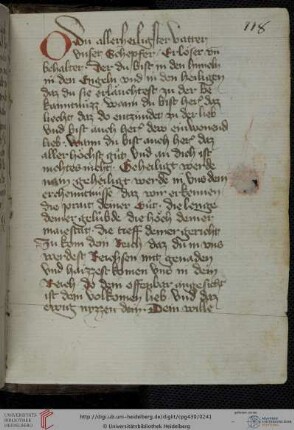 118
O Du allerheiligster vatter
vnser Schepfer Erlöser vn
behalter Der du bist in den himeln
in den Engeln vnd in den heiligen
daz du sie erlüchtest zu der be
kanntnüzz Wann du bist herr daz
liecht daz do entzündet zu der lieb
Vnd bist auch herr dew einwonend
lieb Wann du bist auch herr daz
aller höchst güt vnd an dich ist
nichtes nicht Geheiligt werde
nam geheiligt werde in vns dem
erchenntnisse daz wir erkennen
die prait deiner Güt die lenge
deiner gelübde die höch deiner
maiestat die tieff deiner gericht
Zu kom dein Reich daz du in vns
werdest Reichsen mit genaden
vnd haizzest komen vns in dein
Reich do dein offenbar angesicht
ist dein volkomen lieb vnd daz
ewig nyezzen dein Dein wille
UNIVERSITÄTS-
BIBLIOTHEK
HEIDELBERG
http://digi.ub.uni-heidelberg.de/diglit/cpg430/0241
© Universitätsbibliothek Heidelberg